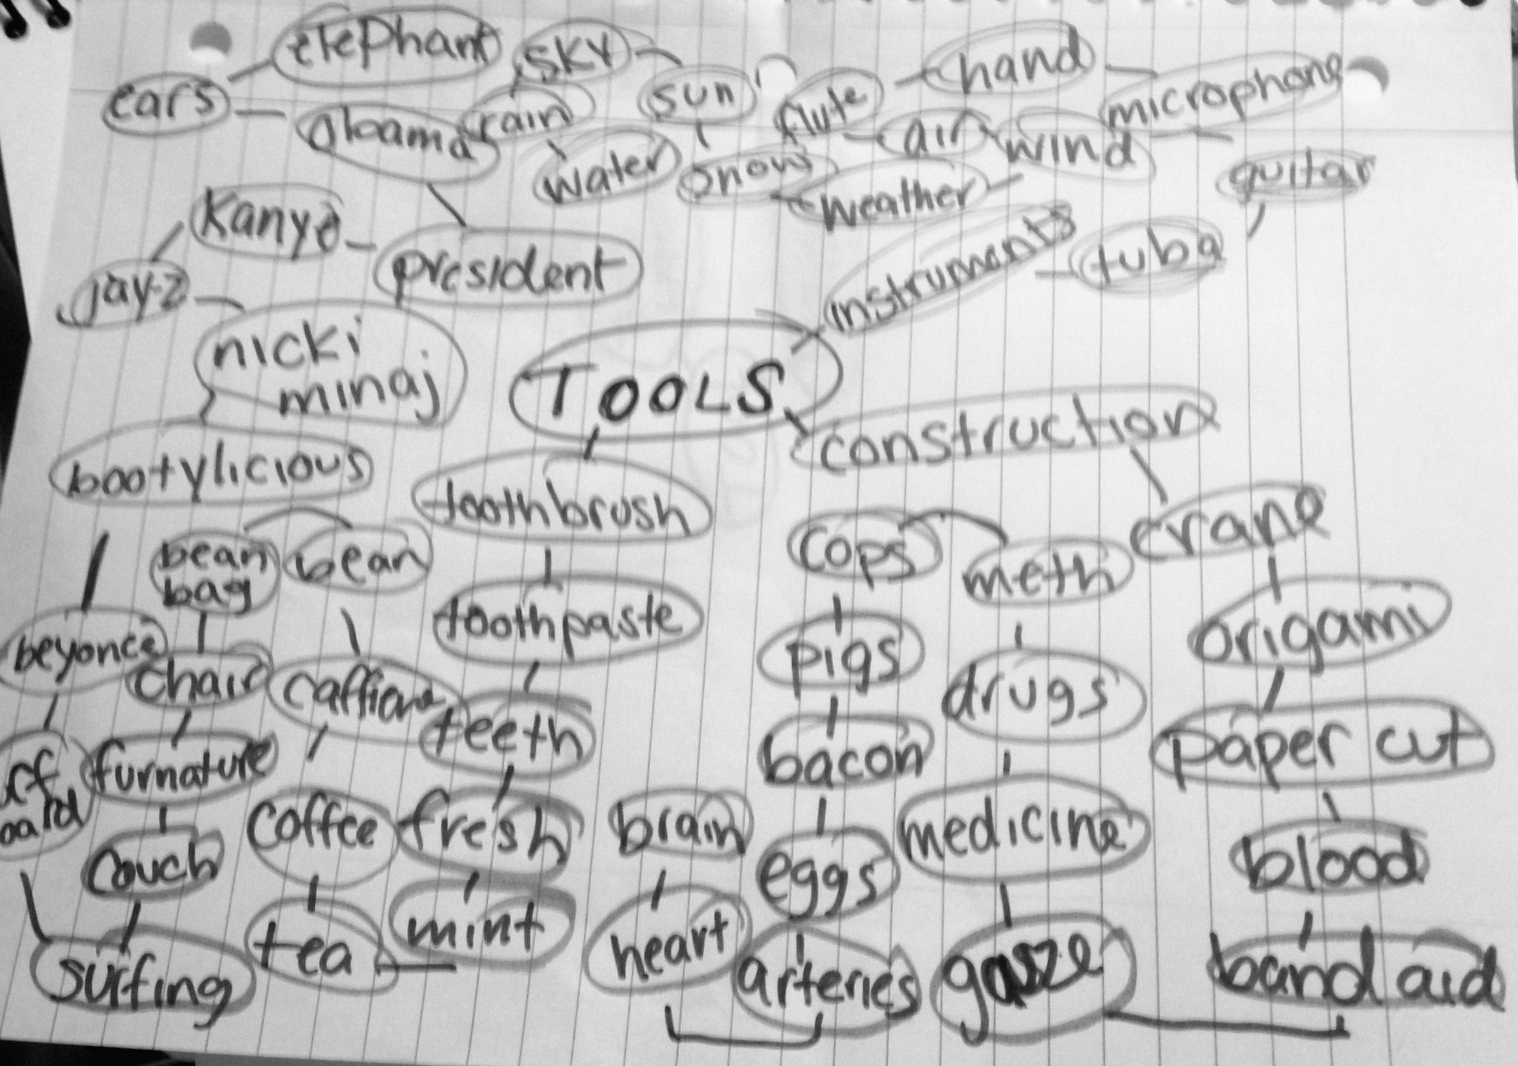 elephant
sky
hand
ears
sun
flute
microphone
obama
rain
air
wind
water
snow
weather
guitar
Kanye
president
instruments
tuba
jay-z
nicki
minaj
TOOLS
construction
bootylicious
toothbrush
crane
bean
bag
bean
cops
meth
toothpaste
origami
beyonce
chair
pigs
drugs
caffiene
teeth
paper cut
furnature
bacon
coffee
fresh
brain
medicine
couch
eggs
blood
tea
mint
heart
surfing
arteries
gauze
band aid